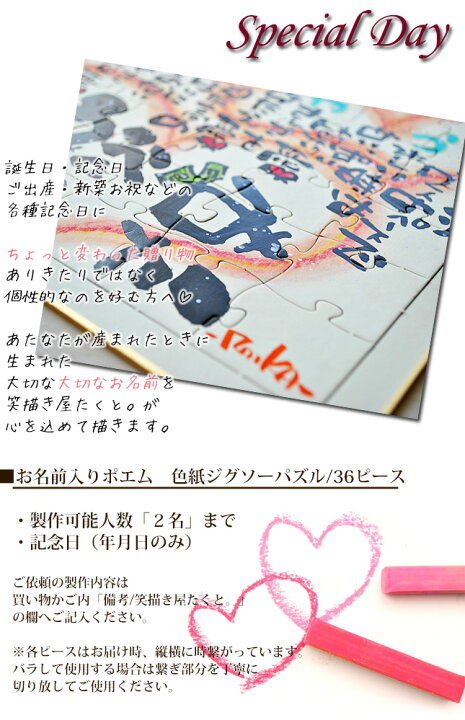 Special Day
誕生日・記念日
ご出産・新築お祝などの
各種記念日に
ちょっと変わった贈り物
ありきたりではなく
個性的なのを好む方へ♡
あたなたが産まれたときに
生まれた
大切な大切なお名前を
笑描き屋たくと。が
心を込めて描きます。
■お名前入りポエム　色紙ジグソーパズル/36ピース
・製作可能人数「２名」まで
・記念日（年月日のみ）
ご依頼の製作内容は
買い物かご内「備考/笑描き屋たくと。」
の欄へご記入ください。
※各ピースはお届け時、縦横に時繋がっています。
バラして使用する場合は繋ぎ部分を丁寧に
切り放してご使用ください。